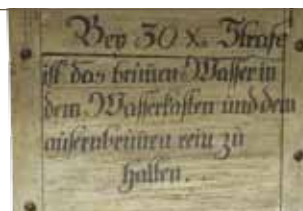 Bey 30 X. Strafe
ist das brunen Wasser in
dem Wasserkasten und dem
ausern brunen rein zu
halten.